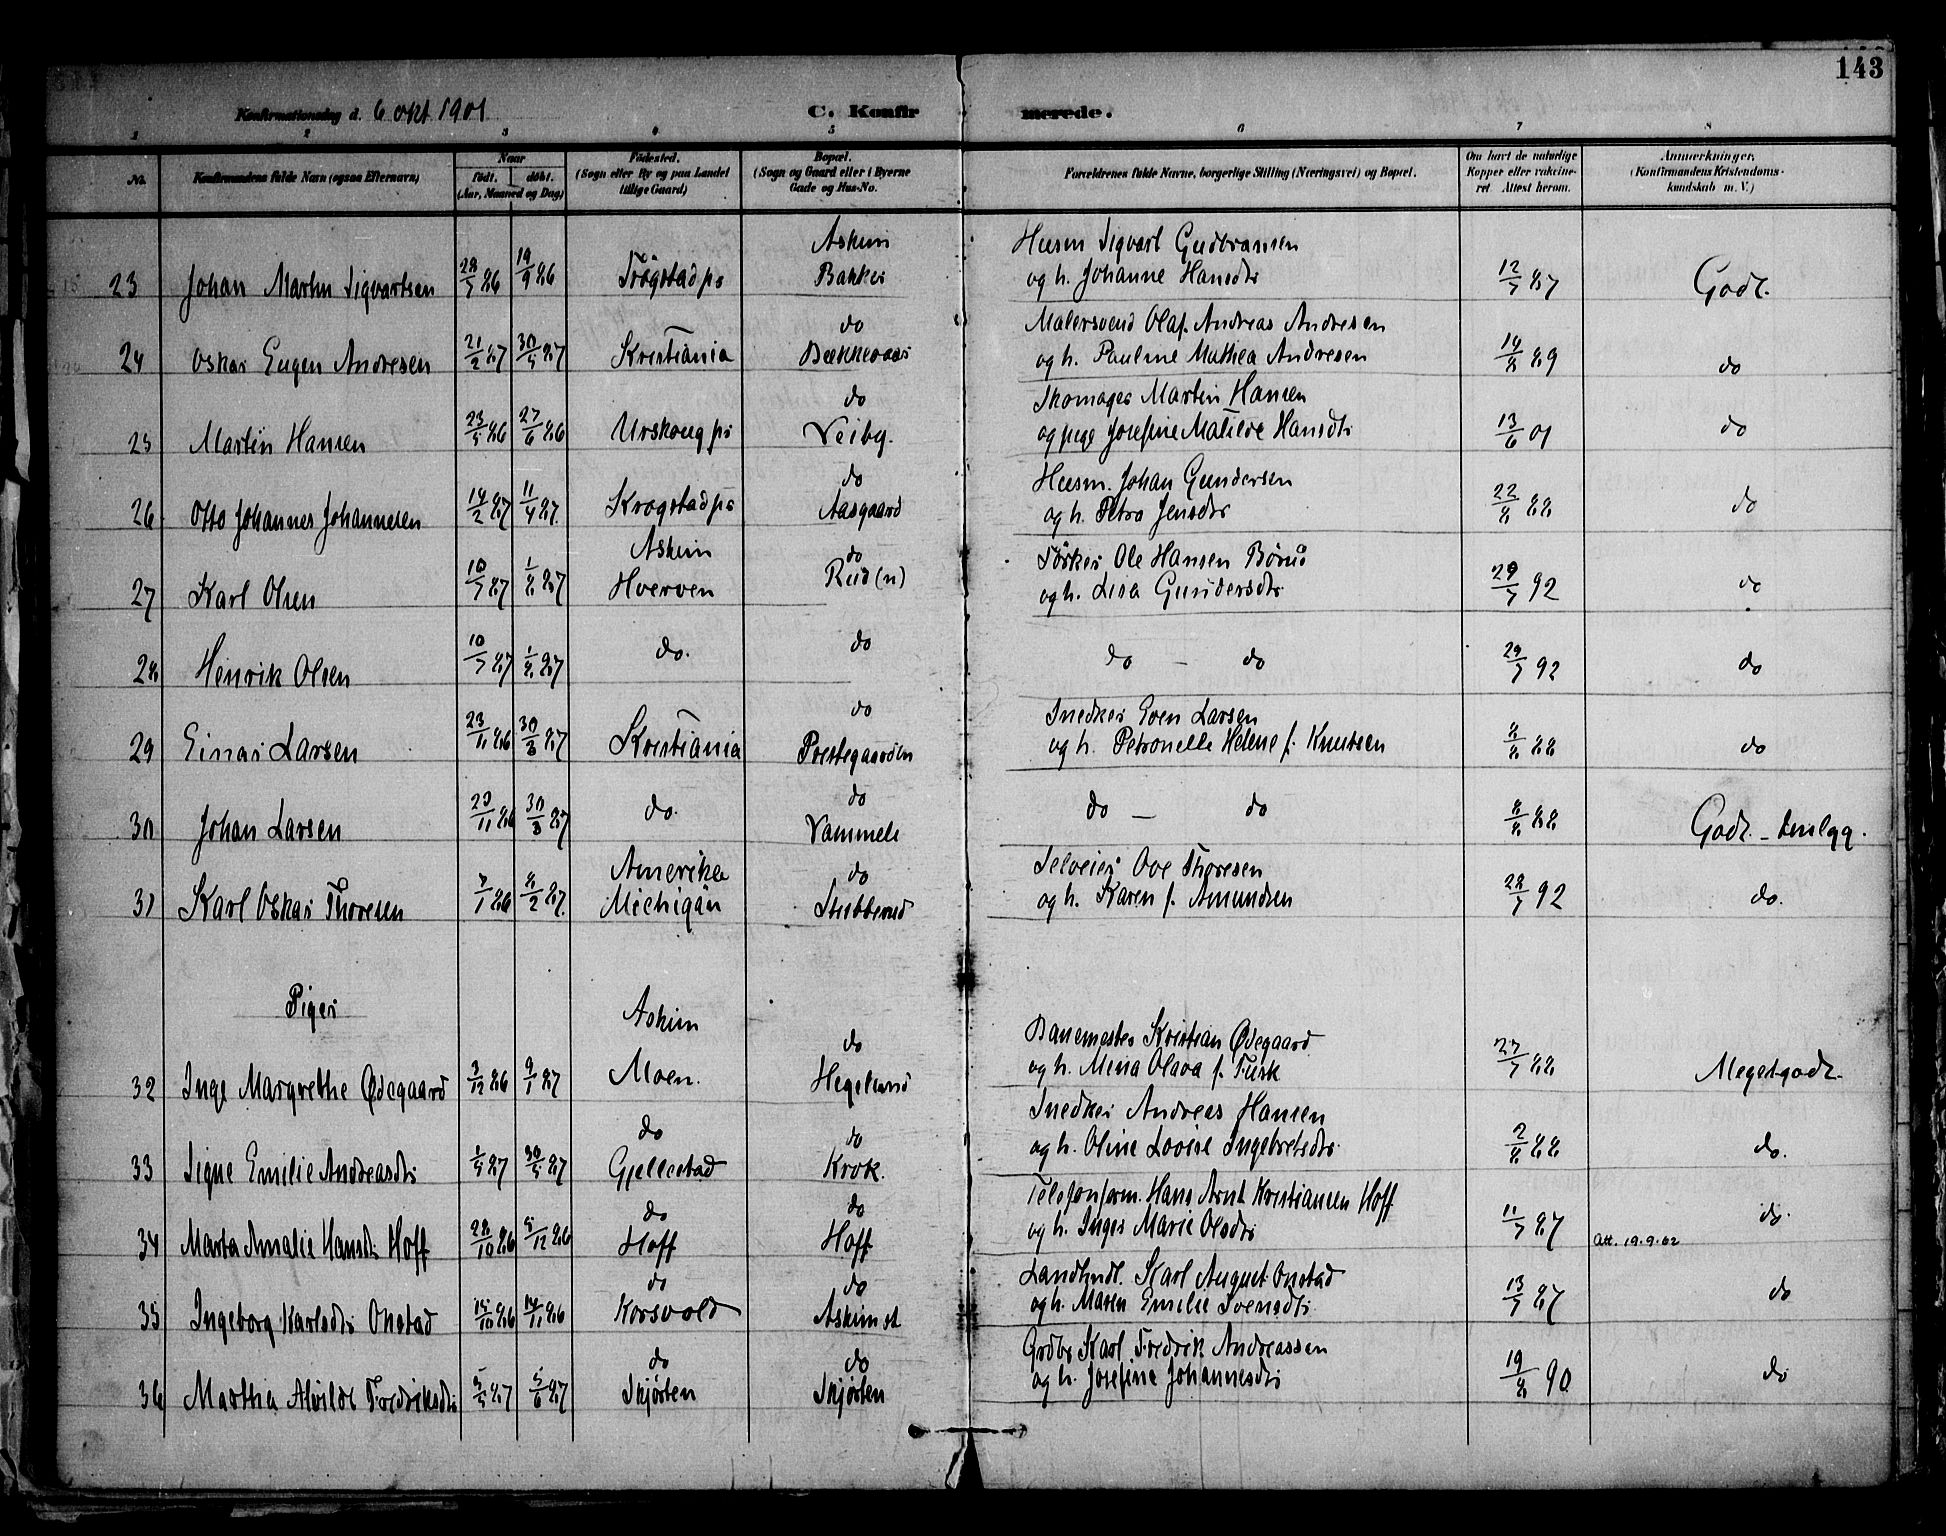 143
Konfirmationsdag d. 6 okt 1901
C. Konfirmerede.
1 2 3 4 5 6 7 8
No. Konfirmandens fulde Navn (ogsaa Efternavn) Naar født. døbt. (Aar, Maaned og Dag) Fødested. (Sogn eller By og paa Landet tillige Gaard) Bopæl. (Sogn og Gaard eller i Byerne Gade og Hus-No. Forældrenes fulde Navne, borgerlige Stilling (Næringsvei) og Bopæl. Om havt de naturlige Kopper eller vakcineret Attest herom. Anmærkninger, (Konfirmandens Kristendomskundskab m. V.)
Askim Husm Sigvart Gudbransen
23 Johan Martin Sigvartsen 28/7 86 19/9 86 Trøgstad ps Bakker og h. Johanne Hansdtr 12/7 87 Godt.
do Malersvend Olaf Andreas Andresen
24 Oskar Eugen Andresen 21/2 87 30/5 87 Kristiania Bækkevar og h. Pauline Mathea Andresen 14/8 89 do
do Skomager Martin Hansen
25 Martin Hansen 23/5 86 27/6 86 Urskoug ps Veiby. og pige Josefine Matilde Hansdtr 13/6 01 do
do Husm. Johan Gundersen
26 Otto Johannes Johannesen 14/2 87 11/4 87. Krogstad ps Aasgaard og h. Petra Jensdtr 22/8 88 do
Askim do Tørker Ole Hansen Børud
27 Karl Olsen 10/7 87 1/8 87 Hverven Rud (n) og h. Lisa Gundersdtr 29/7 92 do
28 Henrik Olsen 10/7 87 1/8 87 do. do do – do 29/7 92 do
do Snedker Even Larsen
29 Einar Larsen 23/11 86 30/3 87 Kristiania Prestegaarden og h. Petronelle Helene f. Knutsen 8/8 88 do
do do – do
30 Johan Larsen 23/11 86 30/3 87 do. Vammeli 8/8 88 Godt.
Amerika do Selveier Ove Thoresen
31 Karl Oskar Thoresen 8/2 87. Michigan Stubberud og h. Karen f. Amundsen 28/7 92 do.
Piger
Askim do Banemester Kristian Ødegaard
32 Inge Margrethe Ødegaard 3/12 86 9/1 87 Moen. Hegelund og h. Mina Olava f. Tusk 27/7 88 Megetgodt.
do do Snedker Andreas Hansen
33 Signe Emilie Andreasdtr 1/5 87 30/5 87 Gjellestad Krok. og h. Oline Lovise Ingebretsdtr 2/8 88 do.
do do Telefonform. Hans Arnt Kristiansen Hoff
34 Marta Amalie Hansdtr Hoff 28/10 86 5/12 86 Hoff Hoff og h. Inger Marie Olsdtr 11/7 87 Att. 19.9.62 do.
do do Landhndl. Karl August Onstad
35 Ingeborg Karlsdtr Onstad 15/10 86 14/11 86 Korsvold Askim st og h. Maren Emilie Svensdtr 13/7 87 do
do do Grdbr Karl Fredrik Andreassen
36 Marthia Alvilde Fredriksdtr 5/5 87 5/6 87 Skjørten Skjørten og h. Josefine Johannesdtr 19/8 90 do